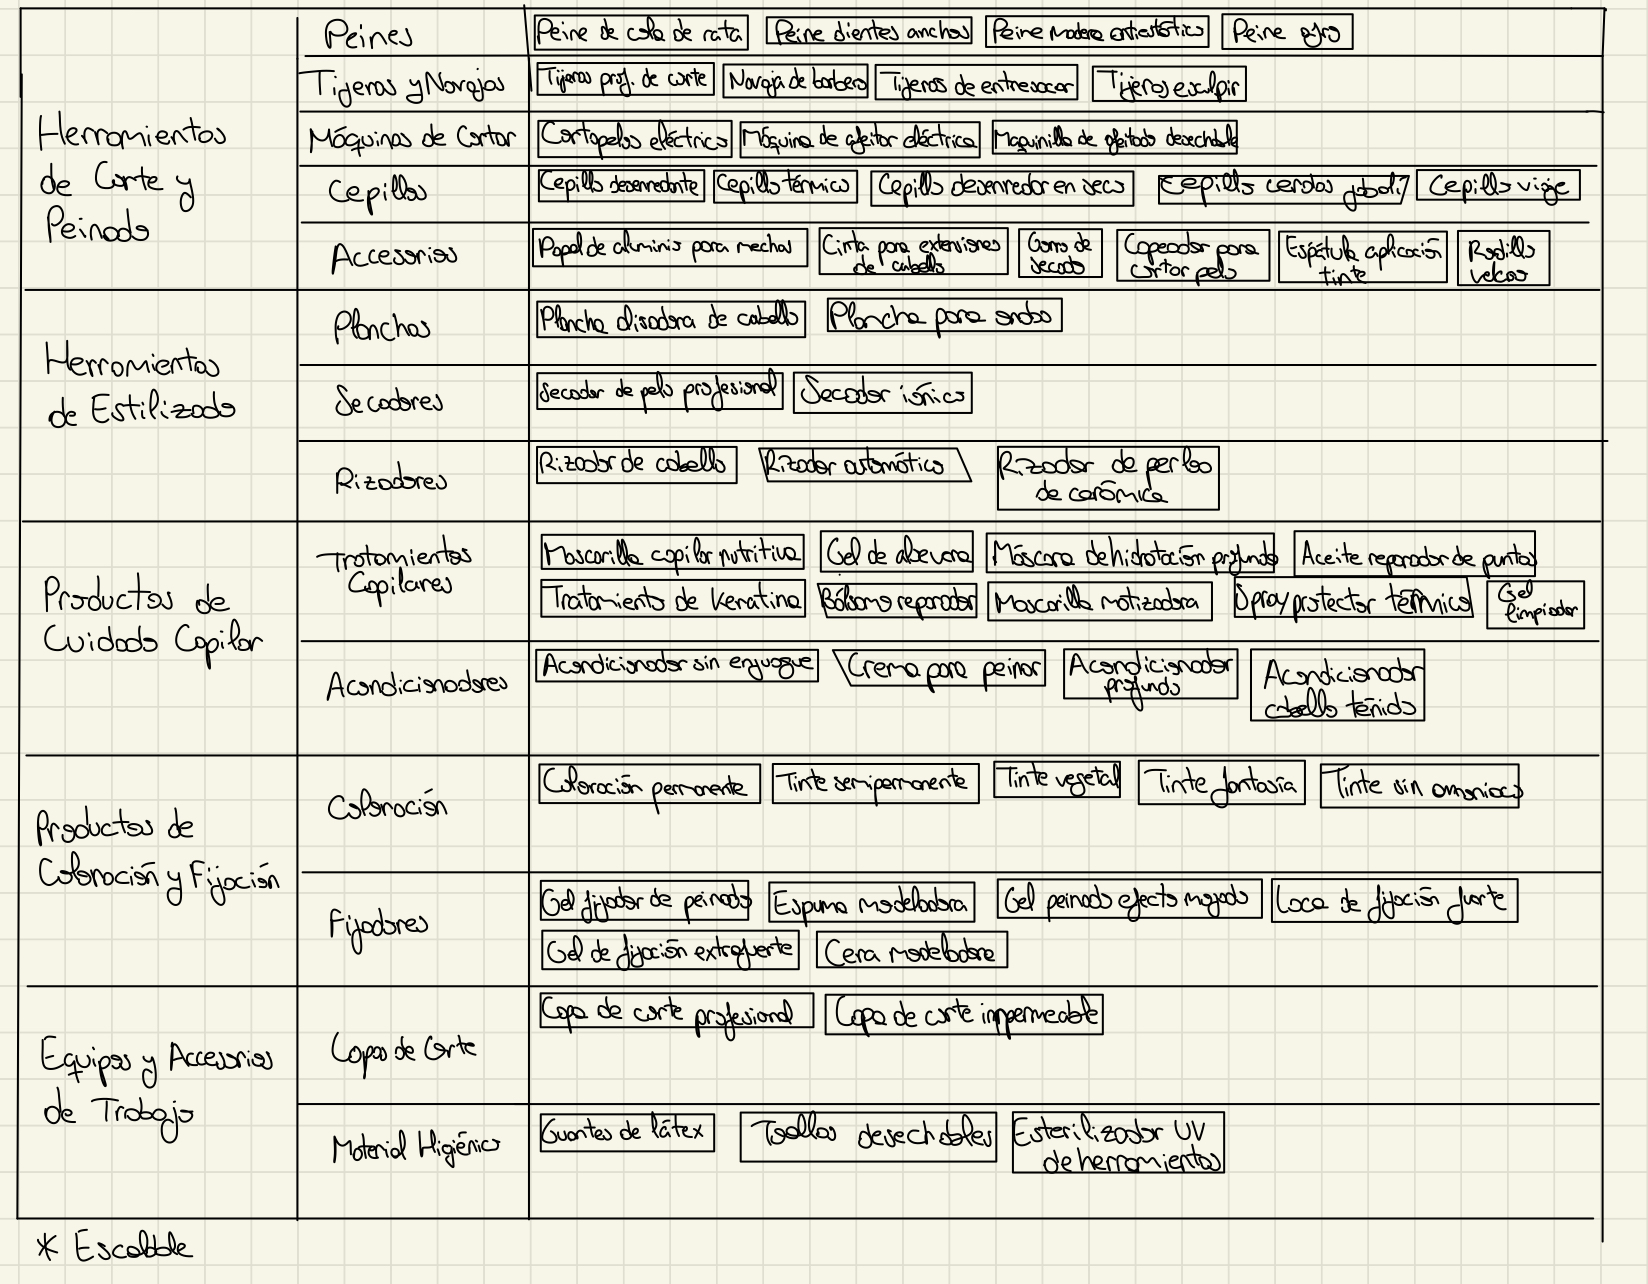 Peines
Peine de cola de rata
Peine dientes anchos
Peine madera antiestático
Peine afro
Tijeras y Navajas
Tijeras prof. de corte
Navaja de barbero
Tijeras de entresacar
Tijeras esculpir
Herramientas
de Corte y
Peinado
Máquinas de Cortar
Cortapelos eléctrico
Máquina de afeitar eléctrica
Maquinilla de afeitado desechable
Cepillos
Cepillo desenredante
Cepillo térmico
Cepillo desenredar en seco
Cepillo cerdas jabalí
Cepillo viaje
Accesorios
Papel de aluminio para mechas
Cinta para extensiones
de cabello
Gorro de
secado
Capeador para
cortar pelo
Espátula aplicación
tinte
Rodillo
velcro
Herramientas
de Estilizado
Planchas
Plancha alisadora de cabello
Plancha para ondas
Secadores
Secador de pelo profesional
Secador iónico
Rizadores
Rizador de cabello
Rizador automático
Rizador de perlas
de cerámica
Productos de
Cuidado Capilar
Tratamientos
Capilares
Mascarilla capilar nutritiva
Gel de aloe vera
Máscara de hidratación profunda
Aceite reparador de puntas
Tratamiento de Keratina
Bálsamo reparador
Mascarilla matizadora
Spray protector térmico
Gel
limpiador
Acondicionadores
Acondicionador sin enjuague
Crema para peinar
Acondicionador
profundo
Acondicionador
cabello teñido
Productos de
Coloración y Fijación
Coloración
Coloración permanente
Tinte semipermanente
Tinte vegetal
Tinte fantasía
Tinte sin amoniaco
Fijadores
Gel fijador de peinado
Espuma modeladora
Gel peinado efecto mojado
Laca de fijación fuerte
Gel de fijación extrafuerte
Cera modeladora
Equipos y Accesorios
de Trabajo
Capas de Corte
Capa de corte profesional
Capa de corte impermeable
Material Higiénico
Guantes de látex
Toallas desechables
Esterilizador UV
de herramientas
* Escalable